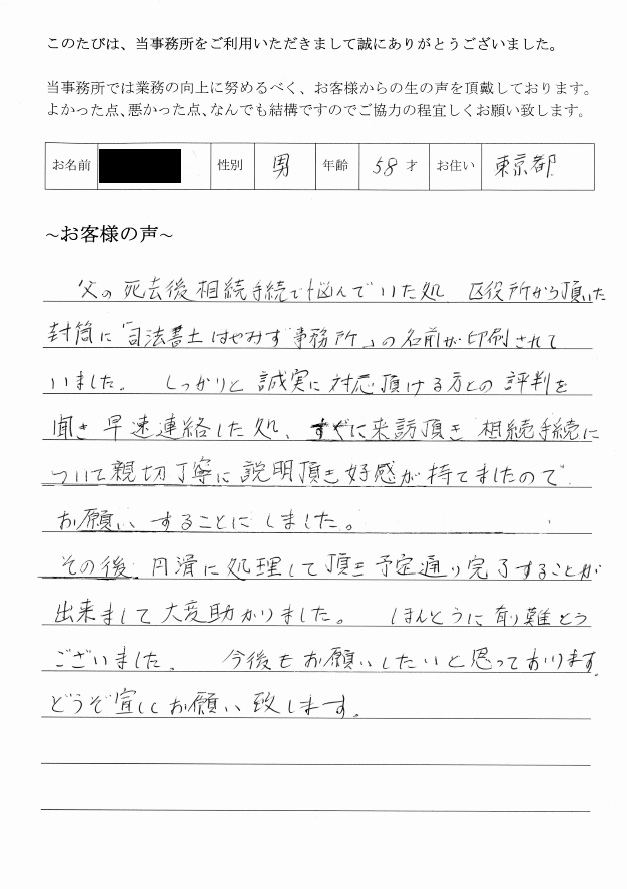 このたびは、当事務所をご利用いただきまして誠にありがとうございました。
当事務所では業務の向上に努めるべく、お客様からの生の声を頂戴しております。
よかった点、悪かった点、なんでも結構ですのでご協力の程宜しくお願い致します。
お名前 性別 男 年齢 58才 お住い 東京都
～お客様の声～
父の死去後相続手続で悩んでいた処 区役所から頂いた
封筒に「司法書士はやみず事務所」の名前が印刷されて
いました。 しっかりと誠実に対応頂ける方との評判を
聞き早速連絡した処、すぐに来訪頂き 相続手続に
ついて親切丁寧に説明頂き好感が持てましたので
お願いすることにしました。
その後 円滑に処理して頂き予定通り完了することが
出来まして大変助かりました。 ほんとうに有り難とう
ございました。 今後もお願いしたいと思っております。
どうぞ宜しくお願い致します。